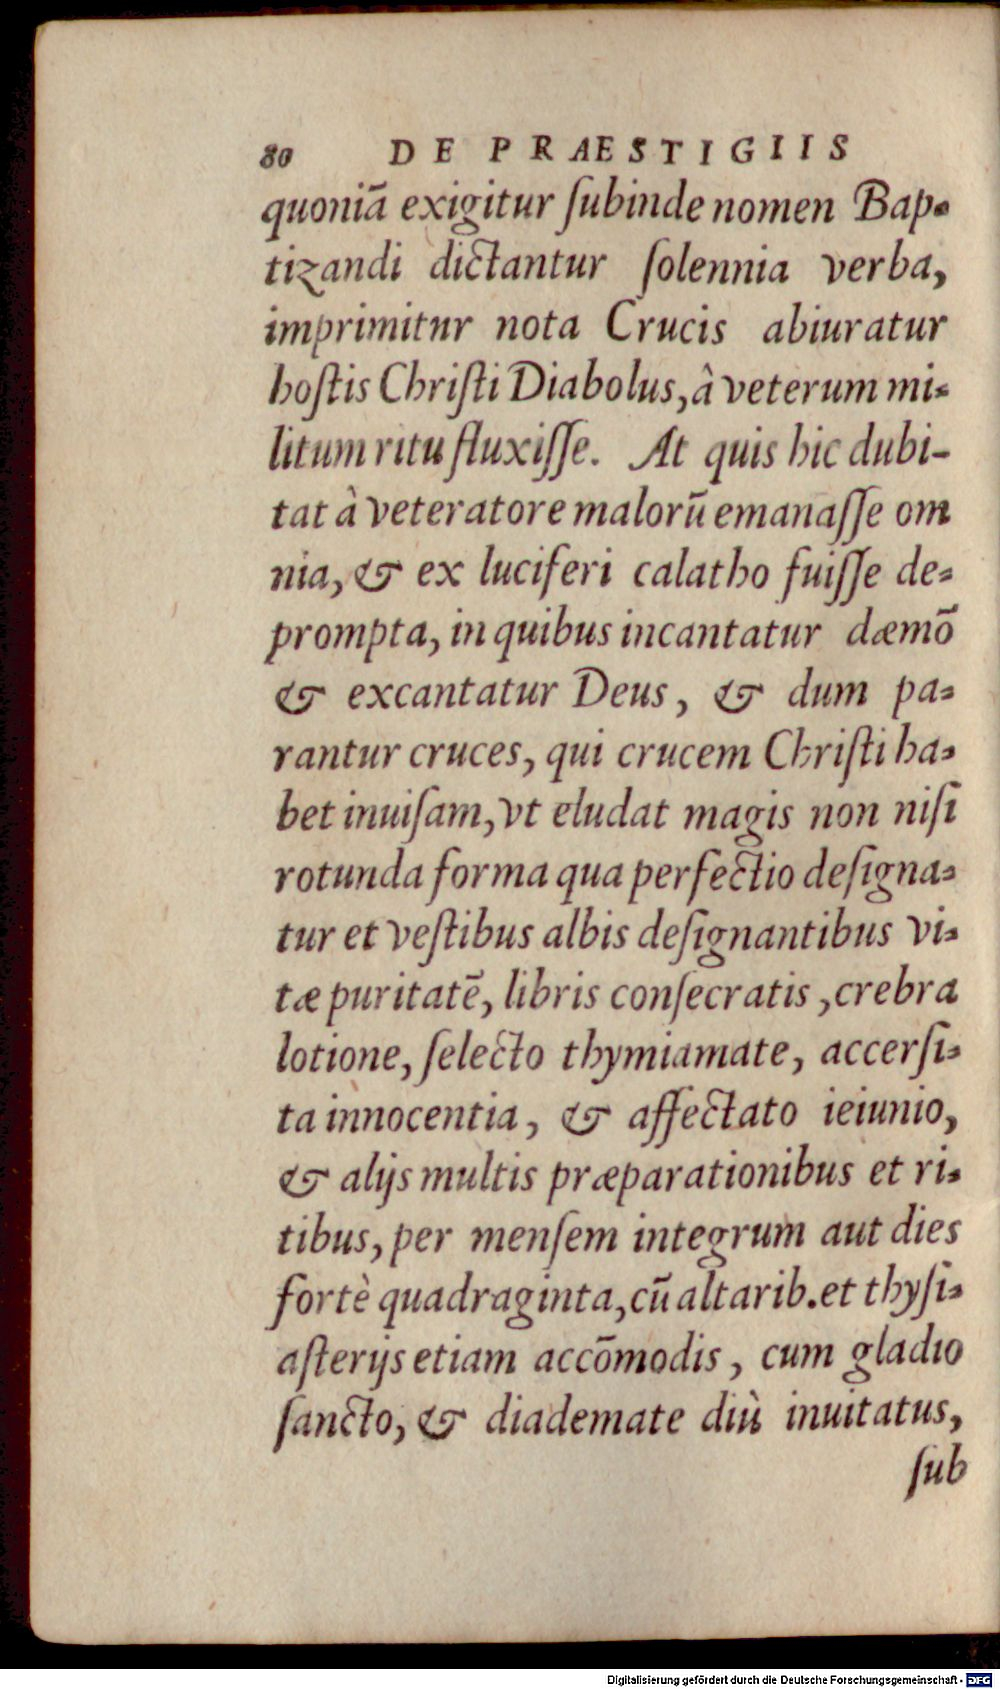 80 DE PRAESTIGIIS
quoniā exigitur ſubinde nomen Bap-
tizandi dictantur ſolennia verba,
imprimitur nota Crucis abiuratur
hoſtis Chriſti Diabolus, â veterum mi-
litum ritu fluxiſſe. At quis hic dubi-
tat â veteratore malorū emanaſſe om
nia, & ex luciferi calatho fuiſſe de-
prompta, in quibus incantatur dæmō
& excantatur Deus, & dum pa-
rantur cruces, qui crucem Chriſti ha-
bet inuiſam, vt eludat magis non niſi
rotunda forma qua perfectio deſigna-
tur et veſtibus albis deſignantibus vi-
tæ puritatē, libris conſecratis, crebra
lotione, ſelecto thymiamate, accerſi-
ta innocentia, & affectato ieiunio,
& alijs multis præparationibus et ri-
tibus, per menſem integrum aut dies
fortè quadraginta, cū altarib. et thyſi-
aſterijs etiam accōmodis, cum gladio
ſancto, & diademate diù inuitatus,
ſub
Digitalisierung gefördert durch die Deutsche Forschungsgemeinschaft - DFG